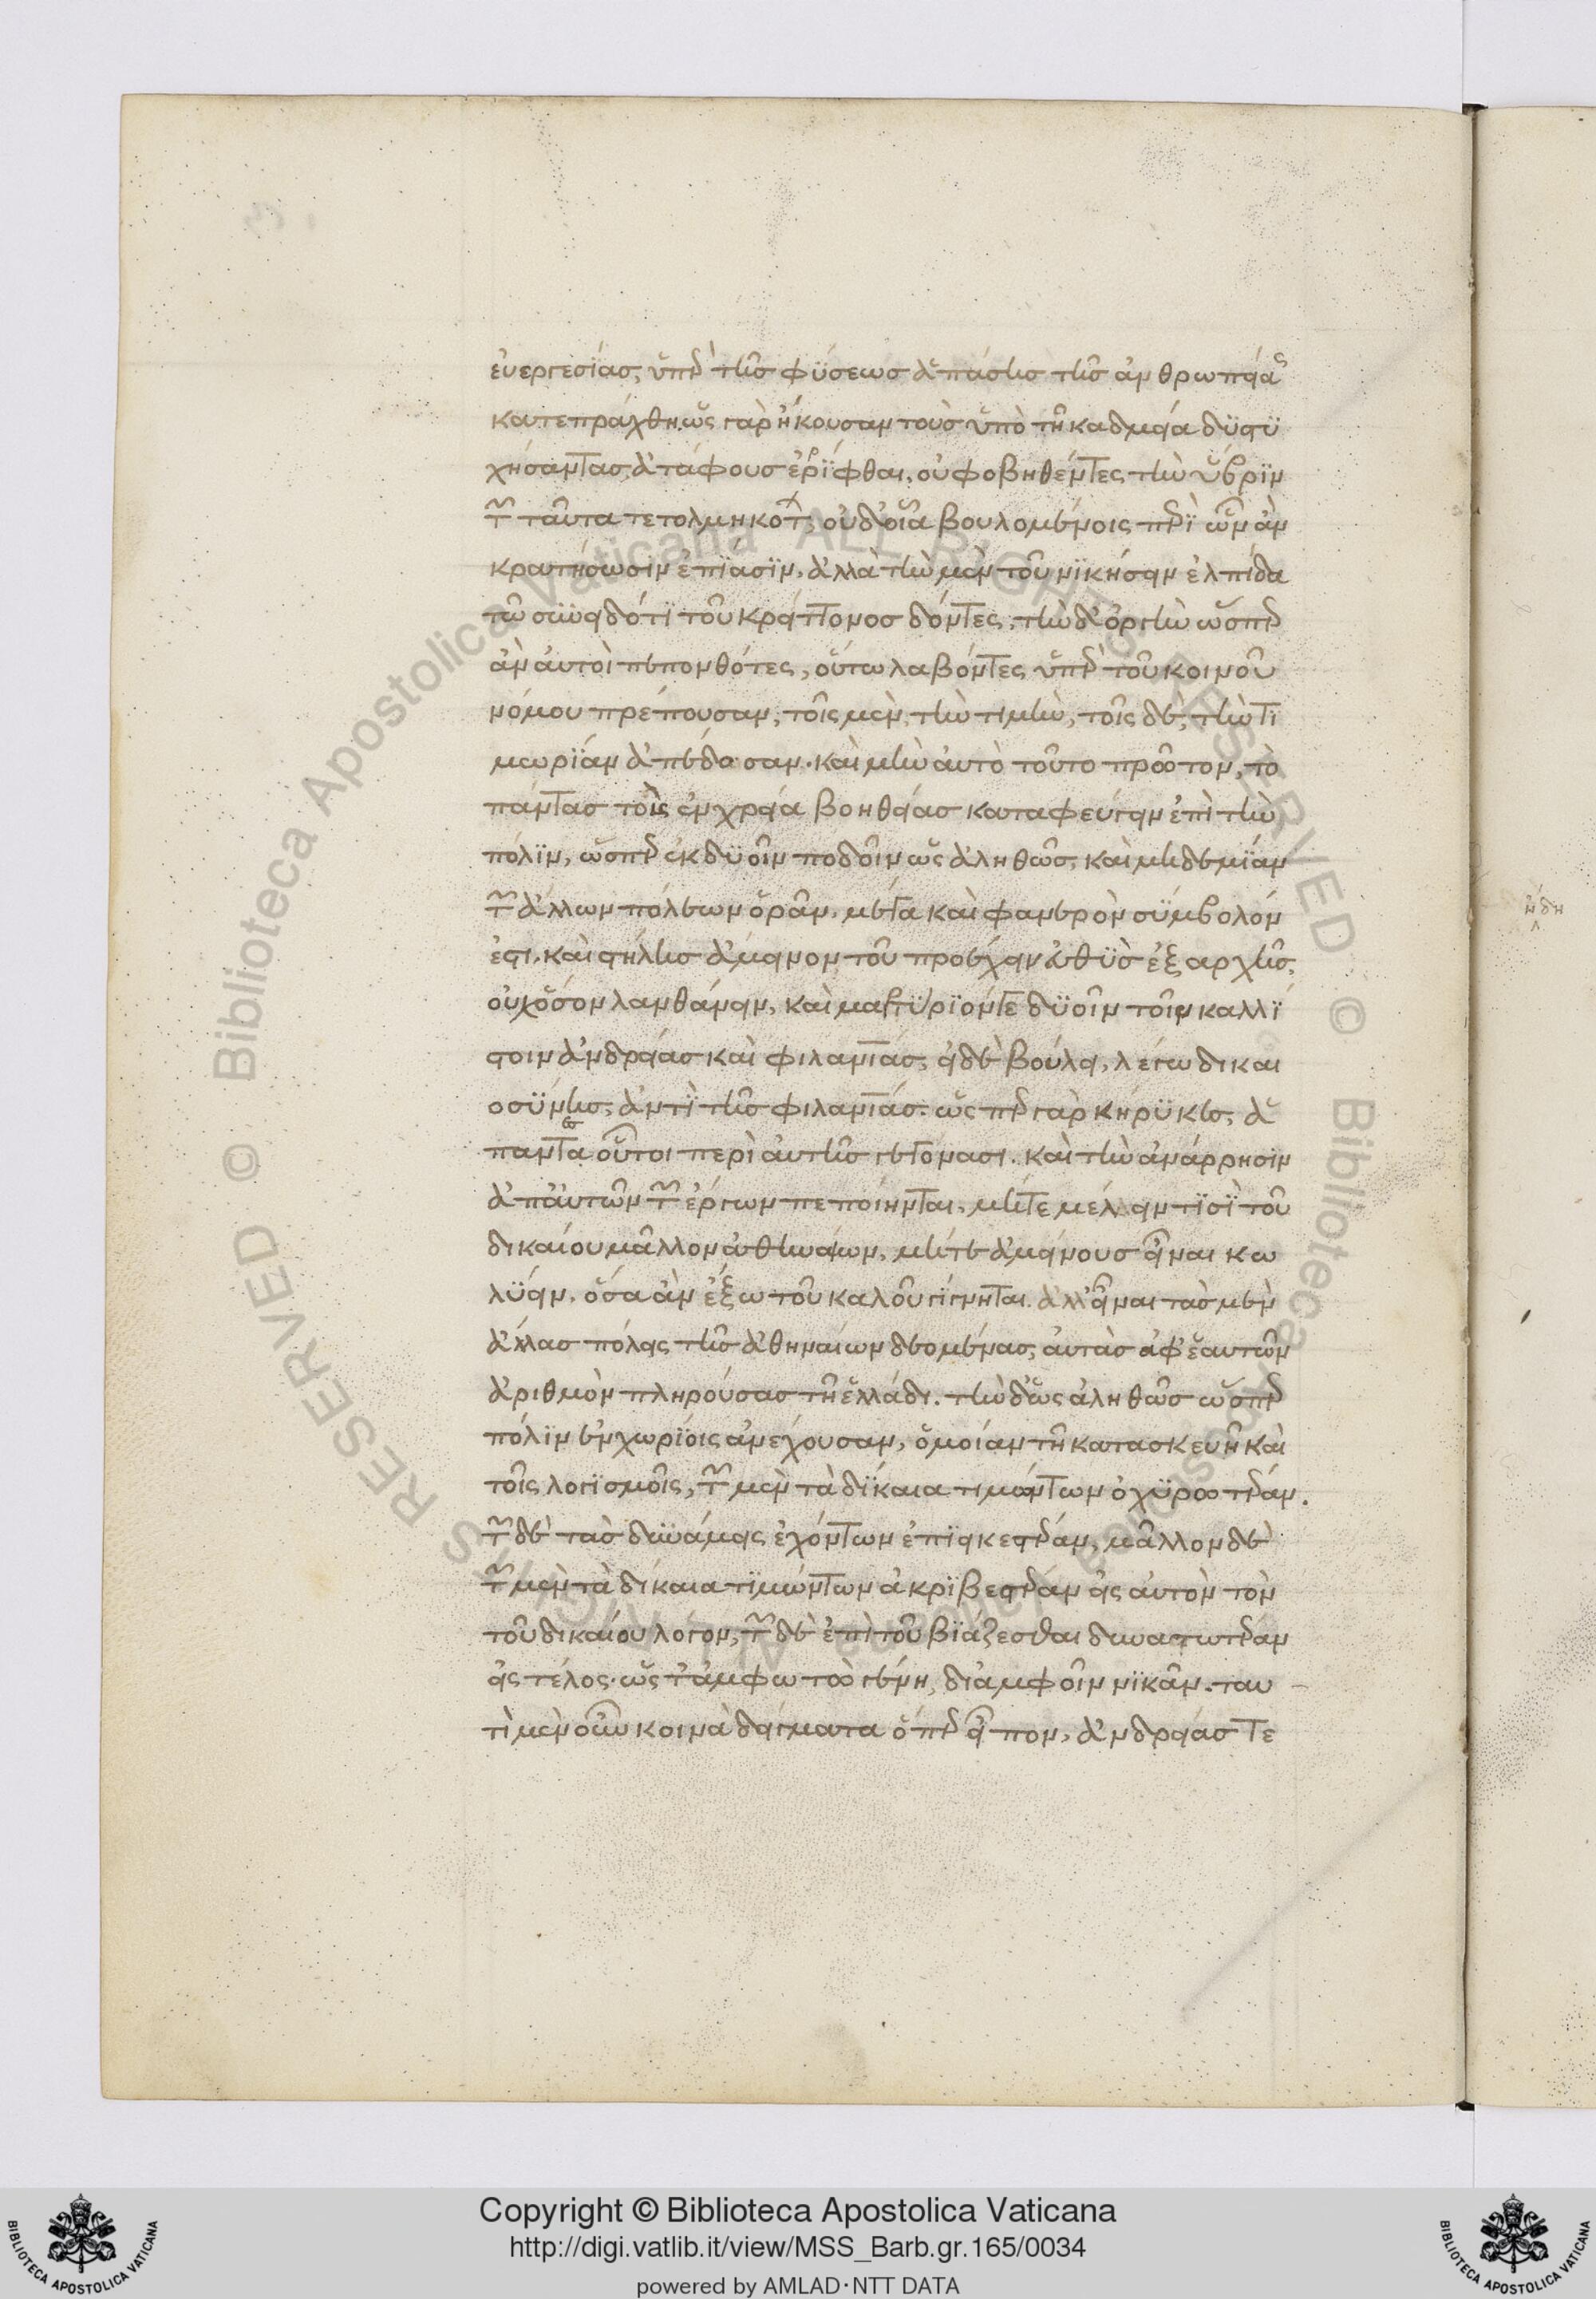 εὐεργεσίας, ὑπὲρ τῆς φύσεως ἁπάσης τῆς ἀνθρωπείας
κατεπράχθη. ὡς γὰρ ἤκουσαν τοὺς ὑπὸ τῆ καδμεία δυστυ
χήσαντας, ἀτάφους ἐρρίφθαι, οὐ φοβηθέντες τὴν ὕβριν
τῶν ταῦτα τετολμηκότων, οὐδ' οἷα βουλομένοις περὶ ὧν ἂν
κρατήσωσιν ἐπίασιν, ἀλλὰ τὴν μὲν τοῦ νικήσειν ἐλπίδα
τῶ συνειδότι τοῦ κρείττονος δόντες, τὴν δ' ὀργὴν ὥσπερ
ἂν αὐτοὶ πεπονθότες, οὕτω λαβόντες ὑπὲρ τοῦ κοινοῦ
νόμου πρέπουσαν, τοῖς μὲν, τὴν τιμὴν, τοῖς δὲ, τὴν τι
μωρίαν ἀπέδοσαν. καὶ μὴν αὐτὸ τοῦτο πρῶτον, τὸ
πάντας τοὺς ἐν χρεία βοηθείας καταφεύγειν ἐπὶ τὴν
πόλιν, ὥσπερ ἐκ δυοῖν ποδοῖν ὡς ἀληθῶς, καὶ μηδεμίαν
τῶν ἄλλων πόλεων ὁρᾶν, μέγα καὶ φανερὸν σύμβολόν
ἐστι. καὶ στήλης ἄμεινον τοῦ προέχειν εὐθὺς ἐξ αρχῆς,
οὐχ ὅσον λανθάνειν, καὶ μαρτύριόν γε δυοῖν τοῖν καλλί
στοιν ἀνδρείας καὶ φιλανθρωπίας, εἰ δὲ βούλει, λέγω δικαι
οσύνης, ἀντὶ τῆς φιλανθρωπίας. ὥς περ γὰρ κήρυκες, ἅ
παντες οὗτοι περὶ αὐτῆς γεγόνασι. καὶ τὴν ἀνάρρησιν
ἀπ αὐτῶν τῶν ἔργων πεποίηνται, μήτε μέλλειν τισὶ τοῦ
δικαίου μᾶλλον ἀθηναίων, μήτε ἀμείνους εἶναι κω
λύειν, ὅσα ἂν ἔξω τοῦ καλοῦ γίγνηται. ἀλλ' εἶναι τὰς μὲν
ἄλλας πόλεις τῆς ἀθηναίων δεομένας, αὐτὰς ἀφ' ἑαυτῶν
ἀριθμὸν πληρούσας τῆ ἑλλάδι. τὴν δ' ὡς ἀληθῶς ὥσπερ
πόλιν ἐν χωρίοις ἀνέχουσαν, ὁμοίαν τῆ κατασκευῆ καὶ
τοῖς λογισμοῖς, τῶν μὲν τὰ δίκαια τιμώντων ὀχυρωτέραν.
τῶν δὲ τὰς δυνάμεις ἐχόντων ἐπιεικεστέραν, μᾶλλον δὲ
τῶν μὲν τὰ δίκαια τιμώντων ἀκριβεστέραν εἰς αὐτὸν τὸν
τοῦ δικαίου λόγον, τῶν δὲ ἐπὶ τοῦ βιάζεσθαι δυνατωτέραν
εἰς τέλος. ὥς τ' ἄμφω τὼ γένη, δι' ἀμφοῖν νικᾶν. ταυ
τὶ μὲν οὖν κοινὰ δείγματα ὅπερ εἶπον, ἀνδρείας τε
ἤδη
Copyright © Biblioteca Apostolica Vaticana
http://digi.vatlib.it/view/MSS_Barb.gr.165/0034
powered by AMLAD·NTT DATA